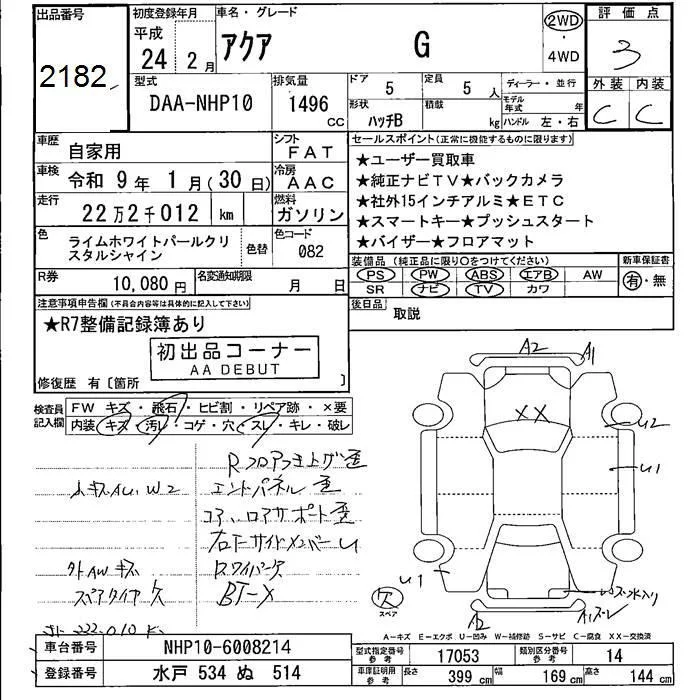 出品番号 初度登録年月 車名・グレード 評価点
2182 平成 24年 2月 アクア G 2WD・4WD 3
型式 排気量 ドア 定員 ディーラー・並行 外装 内装
DAA-NHP10 1496 CC 5 5人 モデル年式 年 C C
形状 ハッチB 積載 kg ハンドル 左・右
車歴 自家用 シフト FAT セールスポイント(正常に機能するものに限ります)
車検 令和 9年 1月(30日) 冷房 AAC ★ユーザー買取車
走行 22万2千012 km 燃料 ガソリン ★純正ナビTV★バックカメラ
★社外15インチアルミ★ETC
★スマートキー★プッシュスタート
★バイザー★フロアマット
色 ライムホワイトパールクリスタルシャイン 色替 色コード 082
装備品 (純正品に限り○をつけてください) 新車保証書
PS PW ABS エアB AW 有・無
SR ナビ TV カワ
R券 10,080円 名変通知期限 月 日
後日品 取説
注意事項申告欄(不具合内容等は具体的に記入して下さい)
★R7整備記録簿あり
初出品コーナー
AA DEBUT
修復歴 有〔箇所 〕
検査員記入欄 FW キズ・飛石・ヒビ割・リペア跡・×要
内装 キズ・汚レ・コゲ・穴・スレ・キレ・破レ
Rフロアつき上げ歪
エンドパネル 歪
コア、ロアサポート歪
右下サイドメンバーU
外AWキズ Rワイパー欠
スペアタイヤ欠
A2 A1
XX
U2
U1
U1
欠
スペア
A2
A1ズレ
A-キズ E-エクボ U-凹み W-補修跡 S-サビ C-腐食 XX-交換済
車台番号 NHP10-6008214
登録番号 水戸 534 ぬ 514
型式指定番号 参考 17053 類別区分番号 参考 14
車庫証明用 参考 長さ 399 cm 幅 169 cm 高さ 144 cm